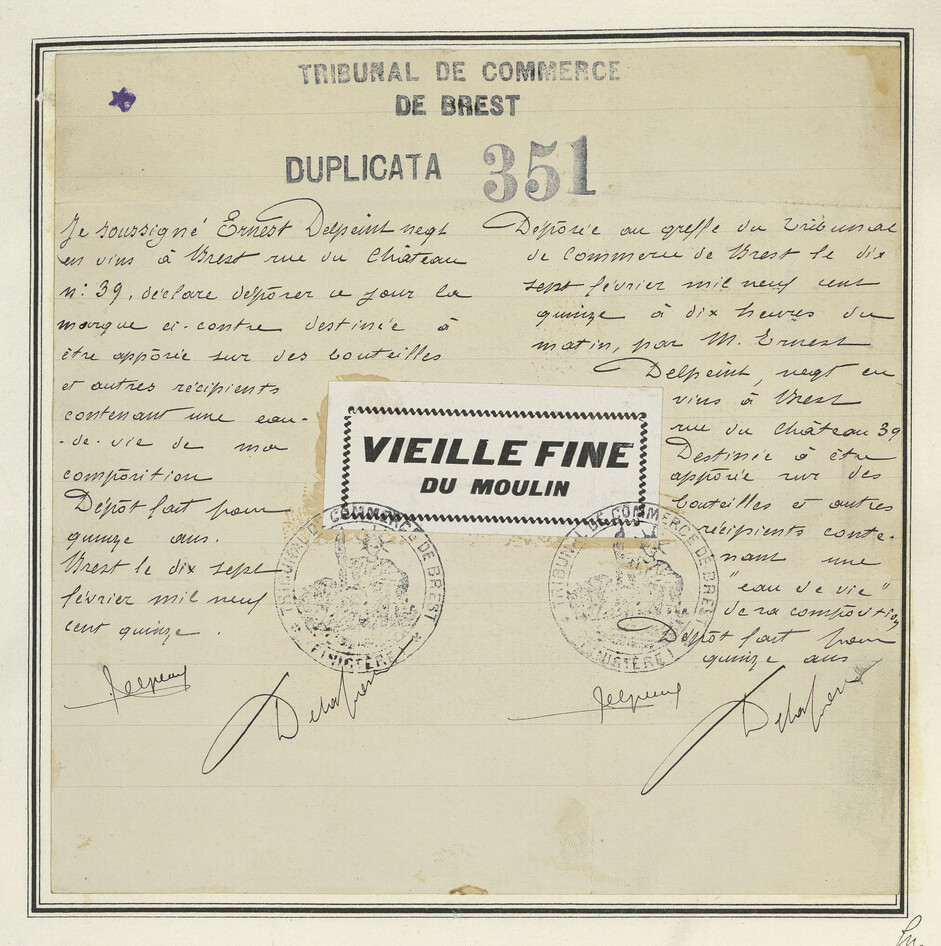 TRIBUNAL DE COMMERCE
DE BREST
DUPLICATA 351
Je soussigné Ernest Delpeint negt
en vins à Brest rue du Château
n: 39, déclare déposer ce jour la
marque ci-contre destinée à
être apposée sur des bouteilles
et autres récipients
contenant une eau-
-de-vie de ma
composition
Dépôt fait pour
quinze ans.
Brest le dix sept
février mil neuf
cent quinze.
Déposée au greffe du Tribunal
de Commerce de Brest le dix
sept février mil neuf cent
quinze à dix heures du
matin, par M. Ernest
Delpeint, negt en
vins à Brest
rue du Château 39
Destinée à être
apposée sur des
bouteilles et autres
récipients conte-
nant une
"eau de vie"
de sa composition
Dépôt fait pour
quinze ans
VIEILLE FINE
DU MOULIN
TRIBUNAL DE COMMERCE DE BREST
FINISTÈRE
TRIBUNAL DE COMMERCE DE BREST
FINISTÈRE